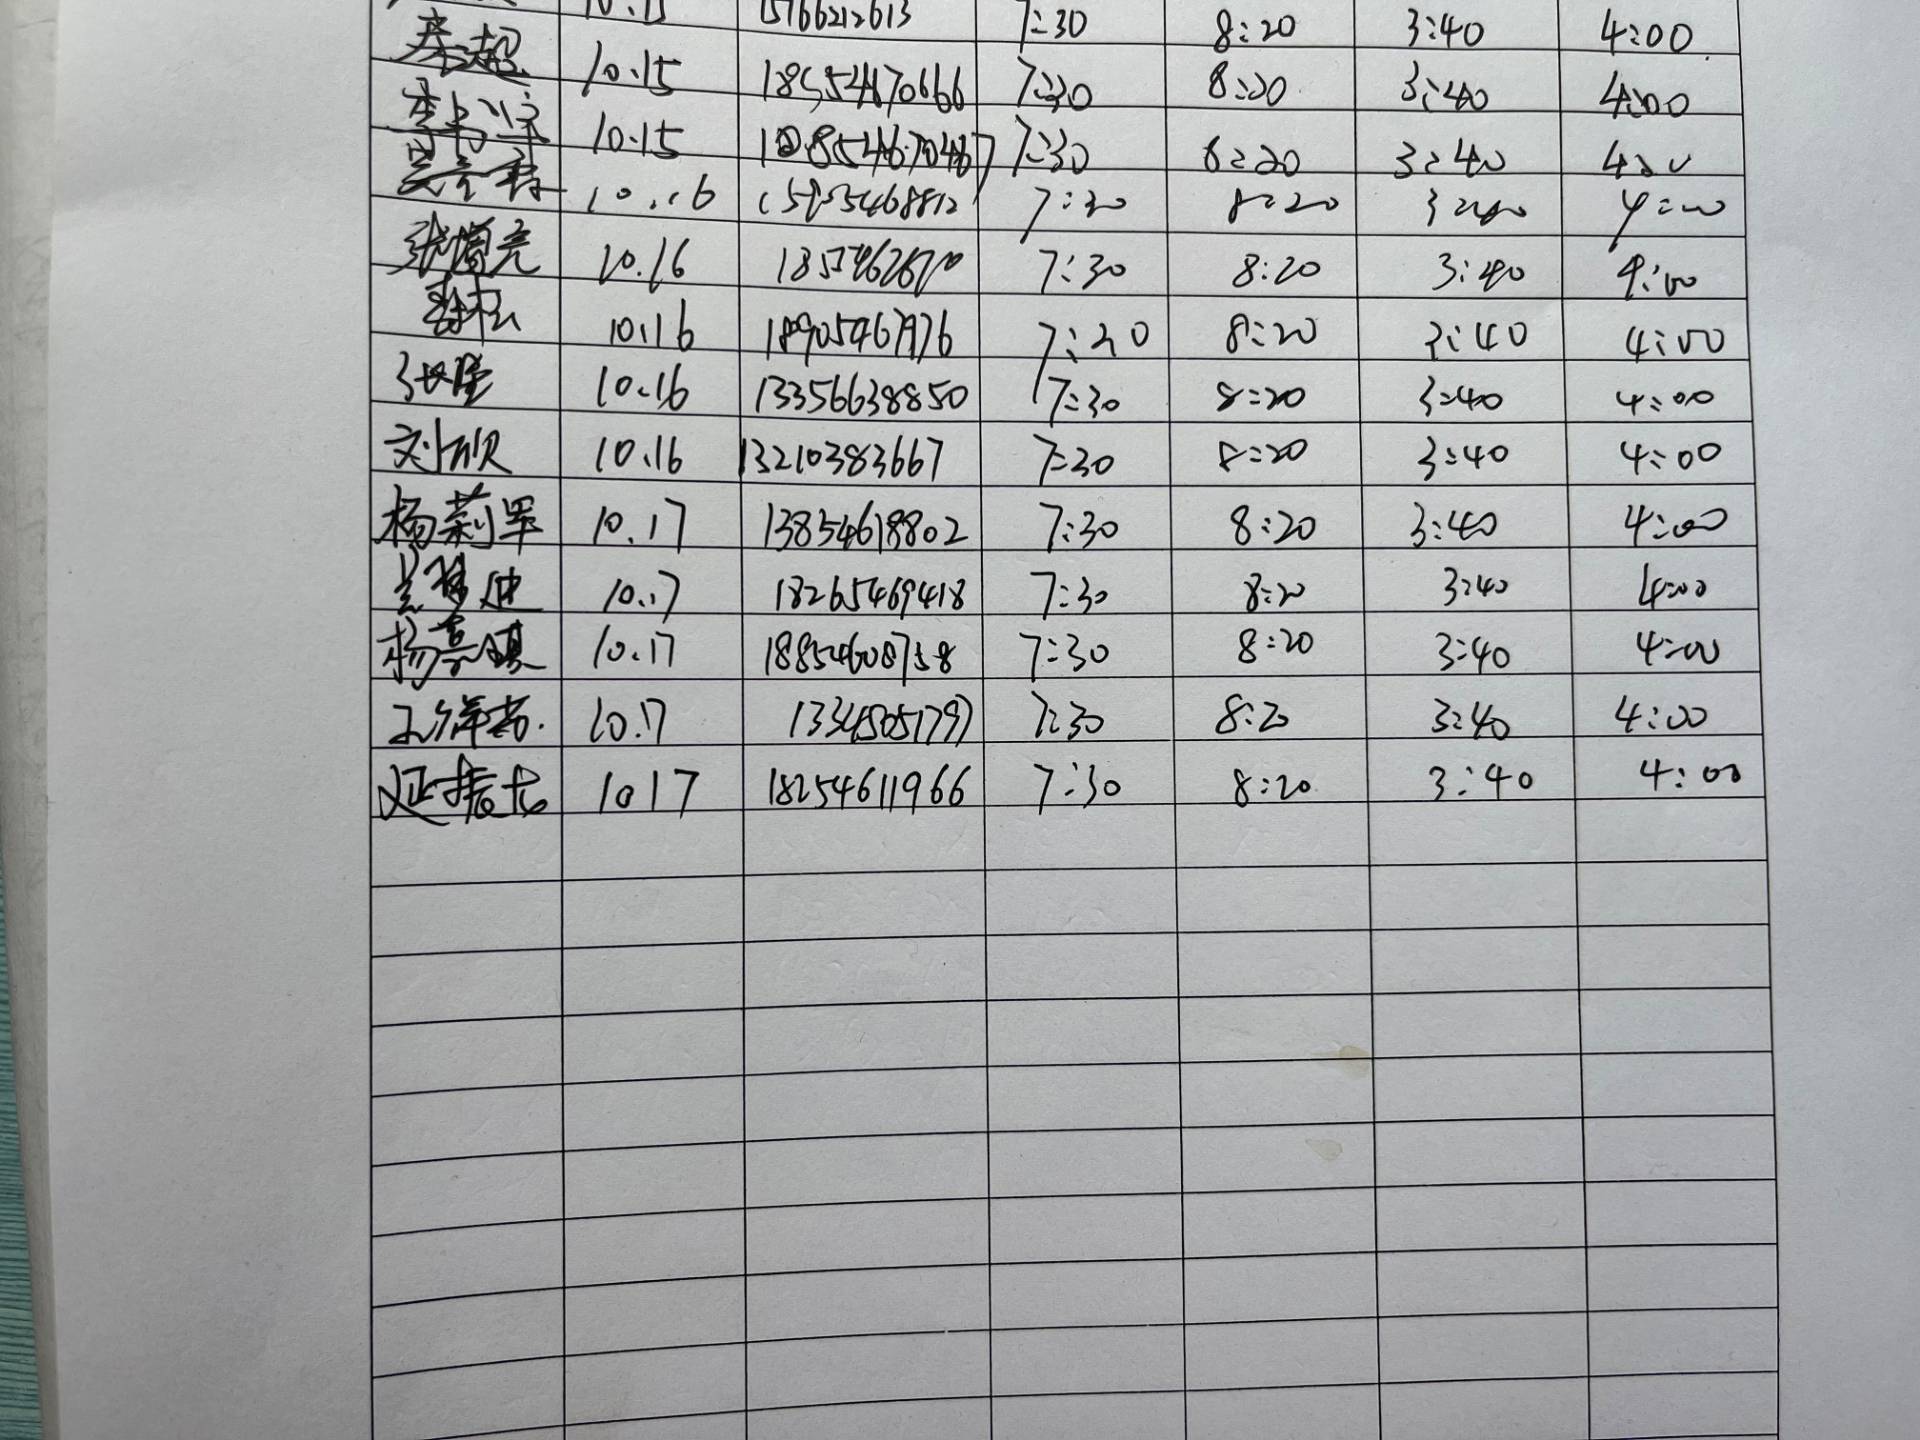 10.15 15766212613 7:30 8:20 3:40 4:00
秦超 10.15 18554670666 7:30 8:20 3:40 4:00
10.15 7:30 8:20 3:40 4:00
10.16 7:30 8:20 3:40 4:00
张增亮 10.16 7:30 8:20 3:40 4:00
10.16 18905467976 7:30 8:20 3:40 4:00
10.16 13356638850 7:30 8:20 3:40 4:00
刘欣 10.16 13210383667 7:30 8:20 3:40 4:00
杨莉军 10.17 13854618802 7:30 8:20 3:40 4:00
10.17 18265469418 7:30 8:20 3:40 4:00
10.17 18854608758 7:30 8:20 3:40 4:00
10.17 13345051797 7:30 8:20 3:40 4:00
延振龙 10.17 18254611966 7:30 8:20 3:40 4:00